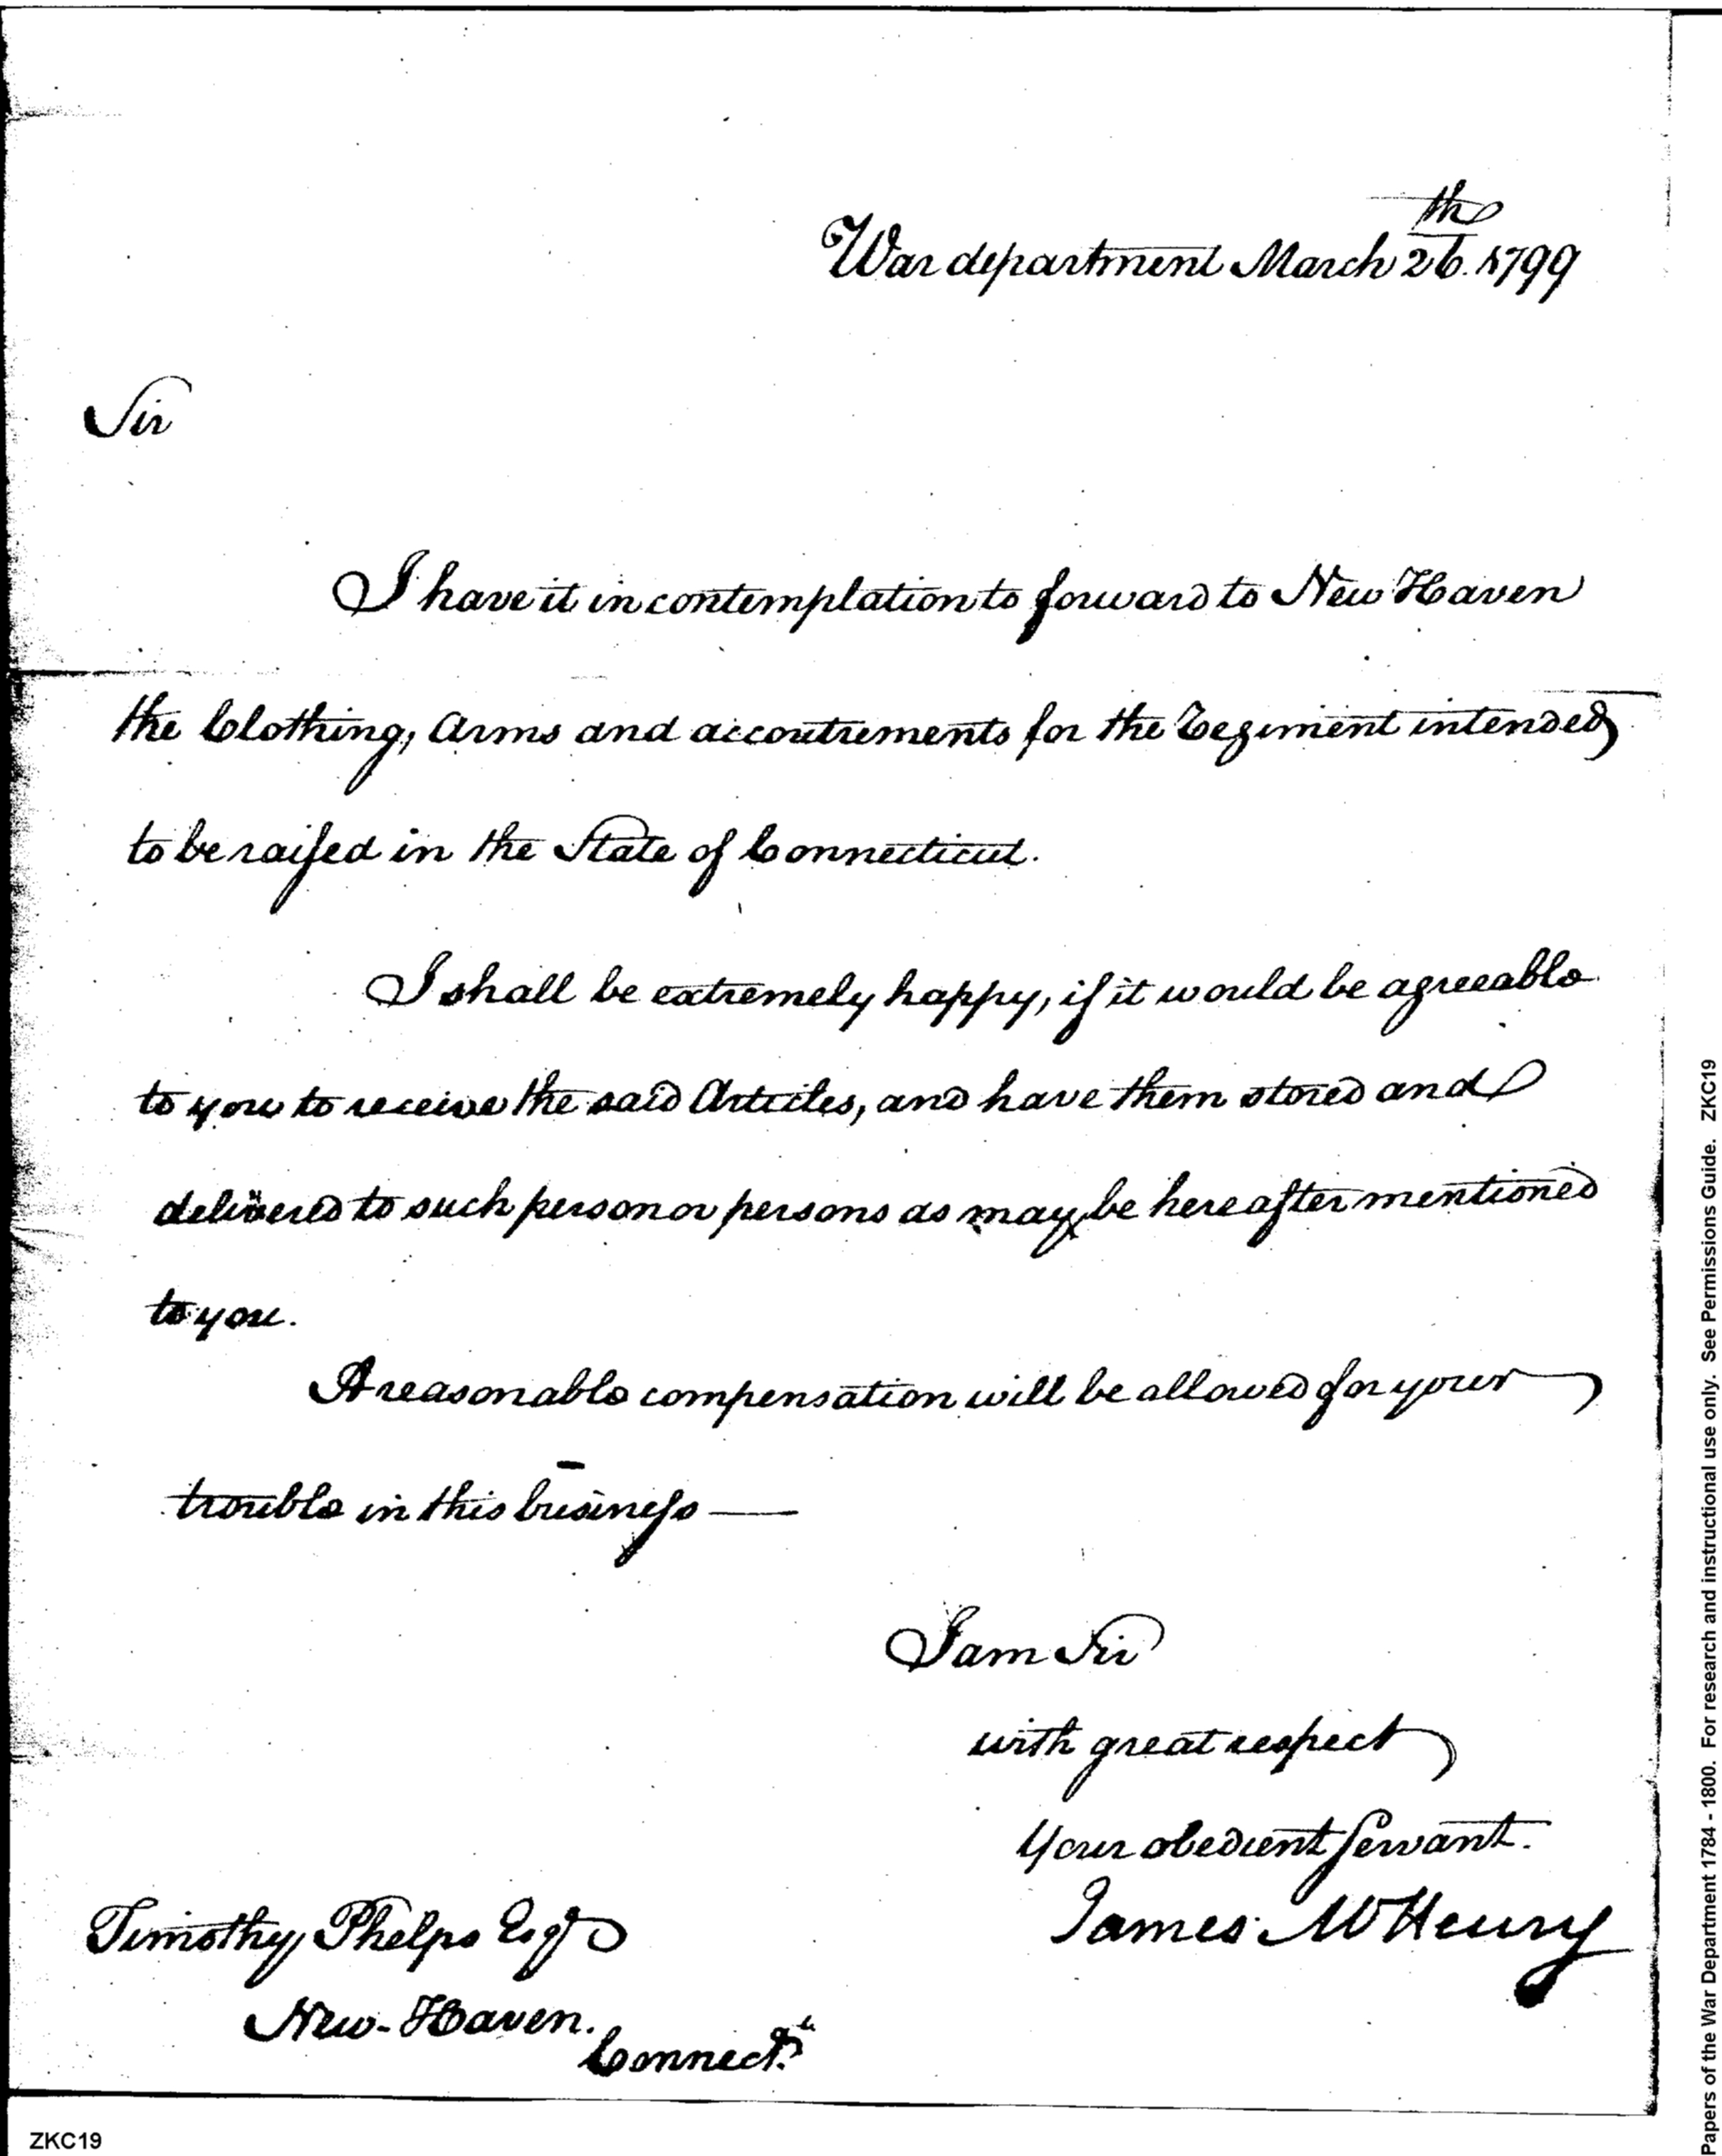 War department March 26th. 1799
Sir
I have it in contemplation to forward to New Haven
the Clothing, Arms and accoutrements for the Regiment intended
to be raised in the State of Connecticut.
I shall be extremely happy, if it would be agreeable
to you to receive the said Articles, and have them stored and
delivered to such person or persons as may be hereafter mentioned
to you.
A reasonable compensation will be allowed for your
trouble in this business —
I am Sir
with great respect
Your obedient Servant.
James McHenry
Timothy Phelps Esqr
New-Haven.
Connectt.
ZKC19
Papers of the War Department 1784 - 1800. For research and instructional use only. See Permissions Guide. ZKC19